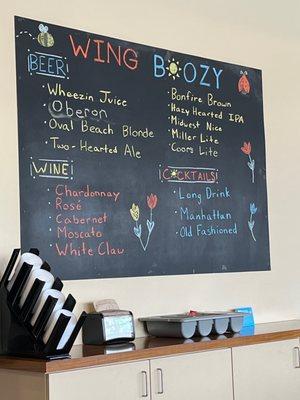 WING BOOZY
BEER
Wheezin Juice
Oberon
Oval Beach Blonde
Two-Hearted Ale
Bonfire Brown
Hazy Hearted IPA
Midwest Nice
Miller Lite
Coors Lite
WINE
Chardonnay
Rosé
Cabernet
Moscato
White Claw
COCKTAILS
Long Drink
Manhattan
Old Fashioned